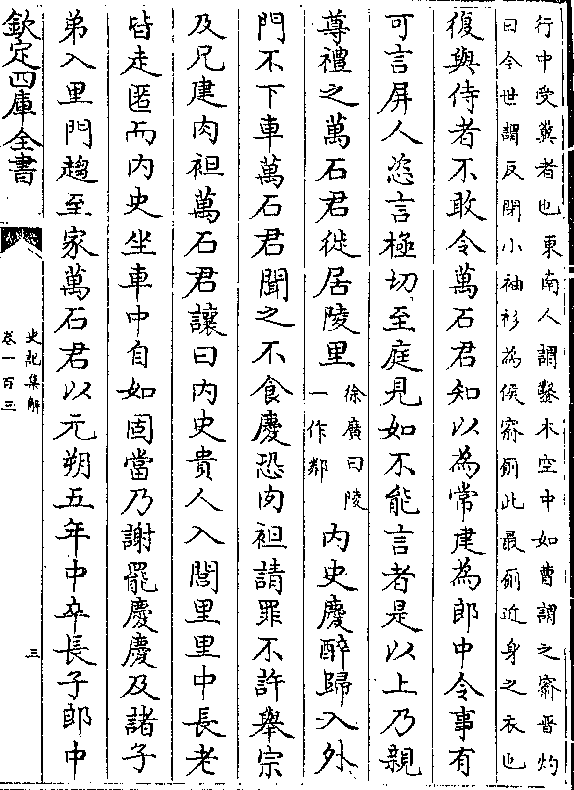 行中受糞者也東南人謂鑿木空中如曹謂之窬晉灼
曰今世謂反閉小袖衫為侯窬厠此最厠近身之衣也
復與侍者不敢令萬石君知以為常建為郎中令事有
可言屏人恣言極切至庭見如不能言者是以上乃親
尊禮之萬石君徙居陵里
徐廣曰陵
一作鄰
内史慶醉歸入外
門不下車萬石君聞之不食慶恐肉袒請罪不許舉宗
及兄建肉袒萬石君讓曰内史貴人入閭里里中長老
皆走匿而内史坐車中自如固當乃謝罷慶慶及諸子
弟入里門趨至家萬石君以元朔五年中卒長子郎中
欽定四庫全書
史記集解
卷一百三
三